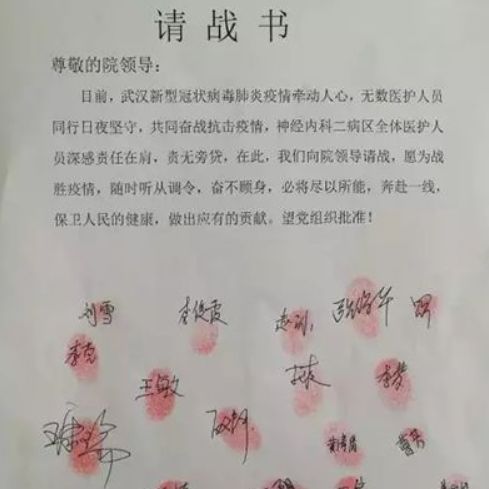 请战书
尊敬的院领导:
目前,武汉新型冠状病毒肺炎疫情牵动人心,无数医护人员
同行日夜坚守,共同奋战抗击疫情,神经内科二病区全体医护人
员深感责任在肩,责无旁贷,在此,我们向院领导请战,愿为战
胜疫情,随时听从调令,奋不顾身,必将尽以所能,奔赴一线,
保卫人民的健康,做出应有的贡献。望党组织批准!
刘雪 李俊霞
李克
王敏 李梦